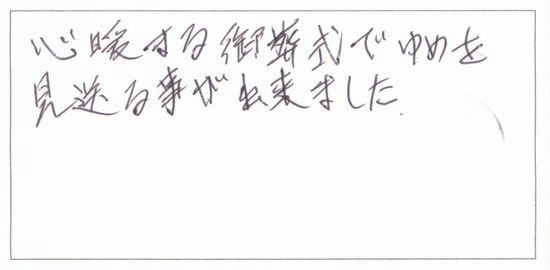 心暖まる御葬式でゆめを
見送る事が出来ました